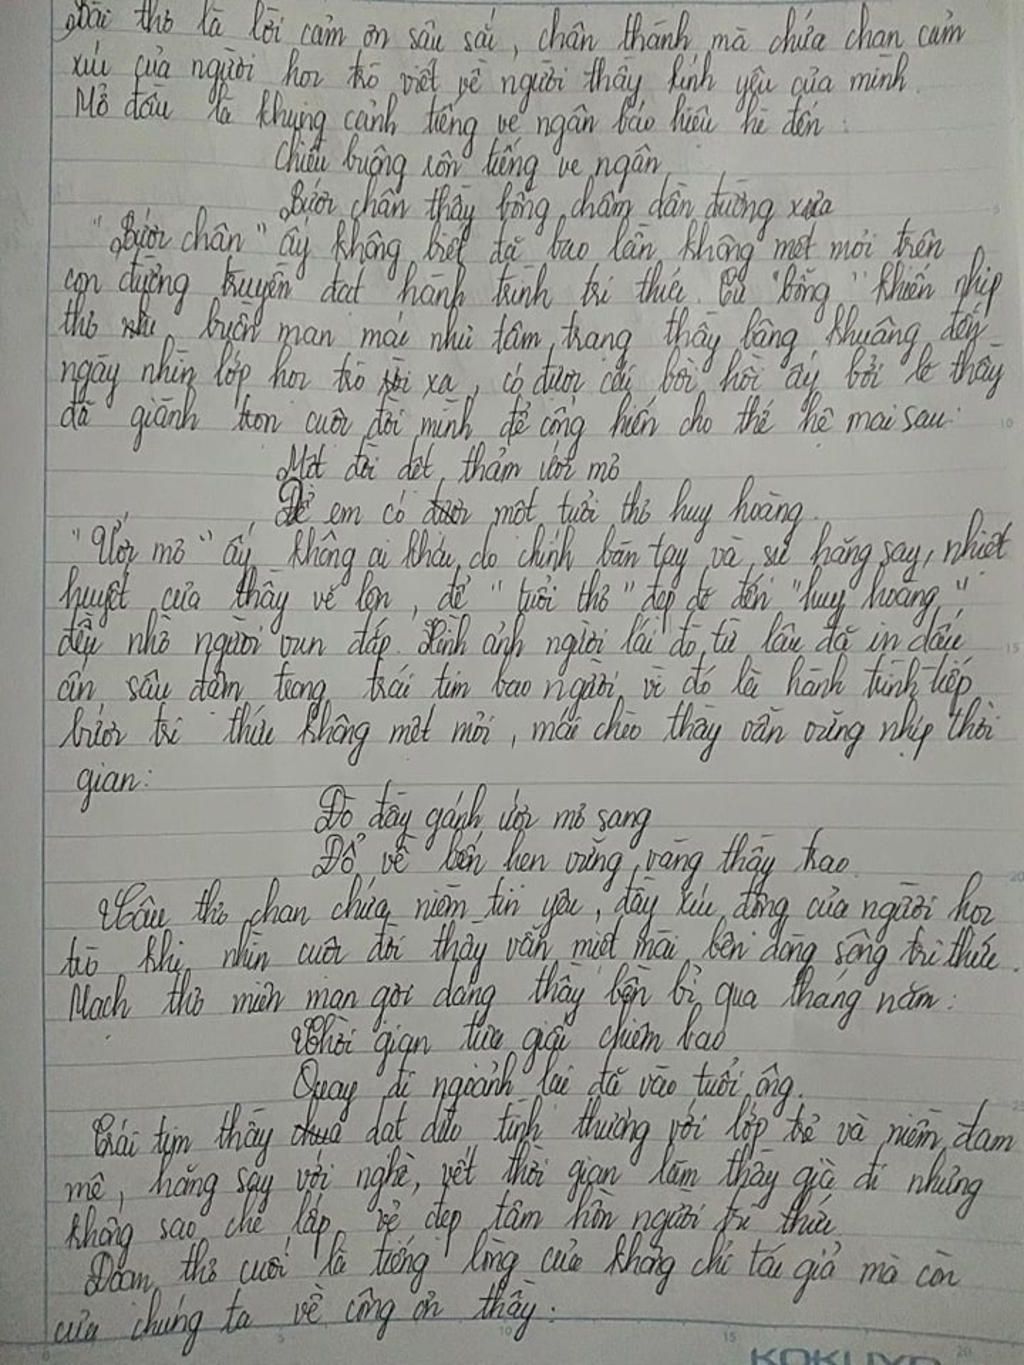 Bài thơ là lời cảm ơn sâu sắc, chân thành mà chứa chan cảm
xúc của người học trò viết về người thầy kính yêu của mình.
Mở đầu là khung cảnh tiếng ve ngân báo hiệu hè đến:
Chiều buông rộn tiếng ve ngân
Bước chân thầy bỗng chậm dần đường xưa
"Bước chân" ấy không biết đã bao lần không mệt mỏi trên
con đường truyền đạt hành trình tri thức. Từ "bỗng" khiến nhịp
thơ như buồn man mác như tâm trạng thầy bâng khuâng đến
ngày nhìn lớp học trò rời xa, có được cái bồi hồi ấy bởi lẽ thầy
đã giành trọn cuộc đời mình để cống hiến cho thế hệ mai sau:
Một đời dệt thảm ước mơ
Để em có được một tuổi thơ huy hoàng.
"Ước mơ" ấy không ai khác, do chính bàn tay và sự hăng say, nhiệt
huyết của thầy vẽ lên, để "tuổi thơ" đẹp đẽ đến "huy hoàng"
đều nhờ người vun đắp. Hình ảnh người lái đò từ lâu đã in dấu
ấn sâu đậm trong trái tim bao người, vì đó là hành trình tiếp
bước tri thức không mệt mỏi, mái chèo thầy vẫn vững nhịp thời
gian:
Đò đầy gánh ước mơ sang
Đổ về bến hẹn vững vàng thầy trao.
Câu thơ chan chứa niềm tin yêu, đầy xúc động của người học
trò khi nhìn cuộc đời thầy vẫn miệt mài bên dòng sông tri thức.
Mạch thơ miên man gợi dáng thầy bền bỉ qua tháng năm:
Thời gian tựa giấc chiêm bao
Quay đi ngoảnh lại đã vào tuổi ông.
Trái tim thầy chưa dạt dào tình thương với lớp trẻ và niềm đam
mê, hăng say với nghề, vết thời gian làm thầy già đi nhưng
không sao che lấp vẻ đẹp tâm hồn người trí thức.
Đoạn thơ cuối là tiếng lòng của không chỉ tác giả mà còn
của chúng ta về công ơn thầy:
KOKUYO